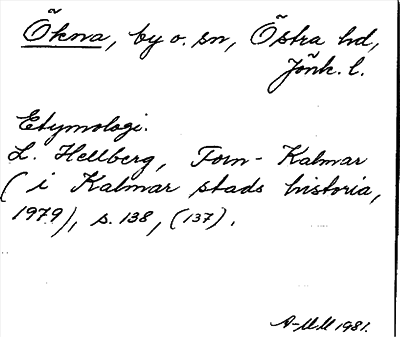 Ökna, by o. sn, Östra hd,
Jönk. l.
Etymologi.
L. Hellberg, Forn-Kalmar
(i Kalmar stads historia,
1979), s. 138, (137).
A-MM 1981.